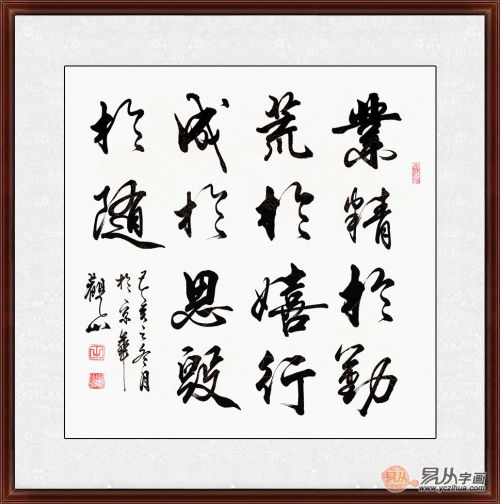 業精於勤
荒於嬉行
成於思毀
於随
己亥之冬月
於京華
觀山
易从
易从字画
www.yczihua.com